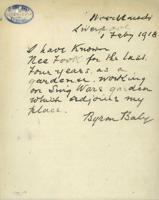 Liverpool
1 Feby 1918
I have Known
Nee Fook for the last
Four years, as a
gardener, working
on Sing War's garden
which adjoins my
place.
Byron Baly